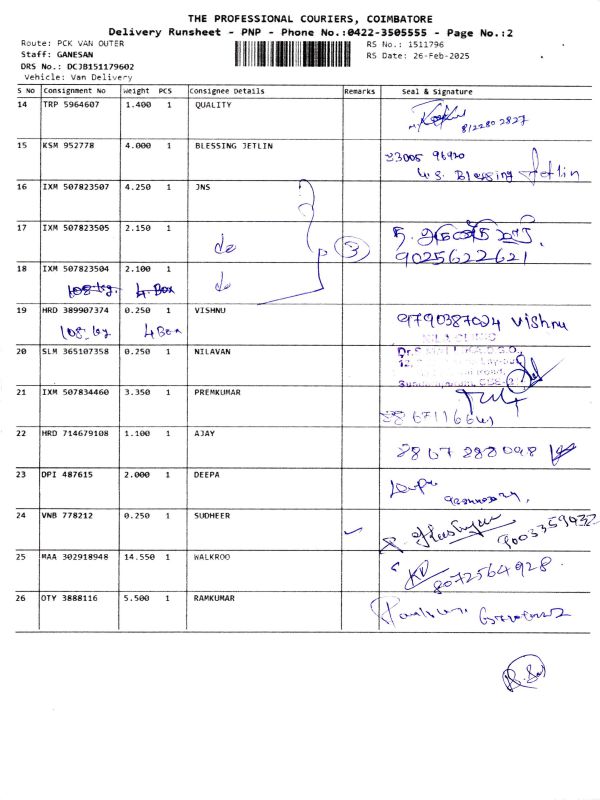 THE PROFESSIONAL COURIERS, COIMBATORE
Delivery Runsheet - PNP - Phone No.:0422-3505555 - Page No.:2
Route: PCK VAN OUTER RS No.: 1511796
Staff: GANESAN RS Date: 26-Feb-2025
DRS No.: DCJB151179602
Vehicle: Van Delivery
S No Consignment No Weight PCS Consignee Details Remarks Seal & Signature
14 TRP 5964607 1.400 1 QUALITY 8122802827
15 KSM 952778 4.000 1 BLESSING JETLIN
U.S. Blessing Jetlin
16 IXM 507823507 4.250 1 JNS
17 IXM 507823505 2.150 1 do 3
9025622621
18 IXM 507823504 2.100 1 do
108 kg. 4 Box
19 HRD 389907374 0.250 1 VISHNU 9790387024 Vishnu
108 kg 4 Box
20 SLM 365107358 0.250 1 NILAVAN
21 IXM 507834460 3.350 1 PREMKUMAR
22 HRD 714679108 1.100 1 AJAY
23 DPI 487615 2.000 1 DEEPA
24 VNB 778212 0.250 1 SUDHEER
25 MAA 302918948 14.550 1 WALKROO 8072564928
26 OTY 3888116 5.500 1 RAMKUMAR